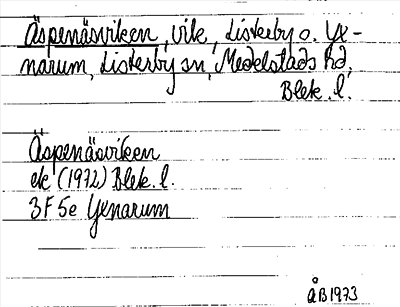 Äspenäsviken, vik, Listerby o. Yx-
narum, Listerby sn, Medelstads hd,
Blek. l.
Äspenäsviken
ek (1972) Blek. l.
3F 5e Yxnarum
ÅB 1973